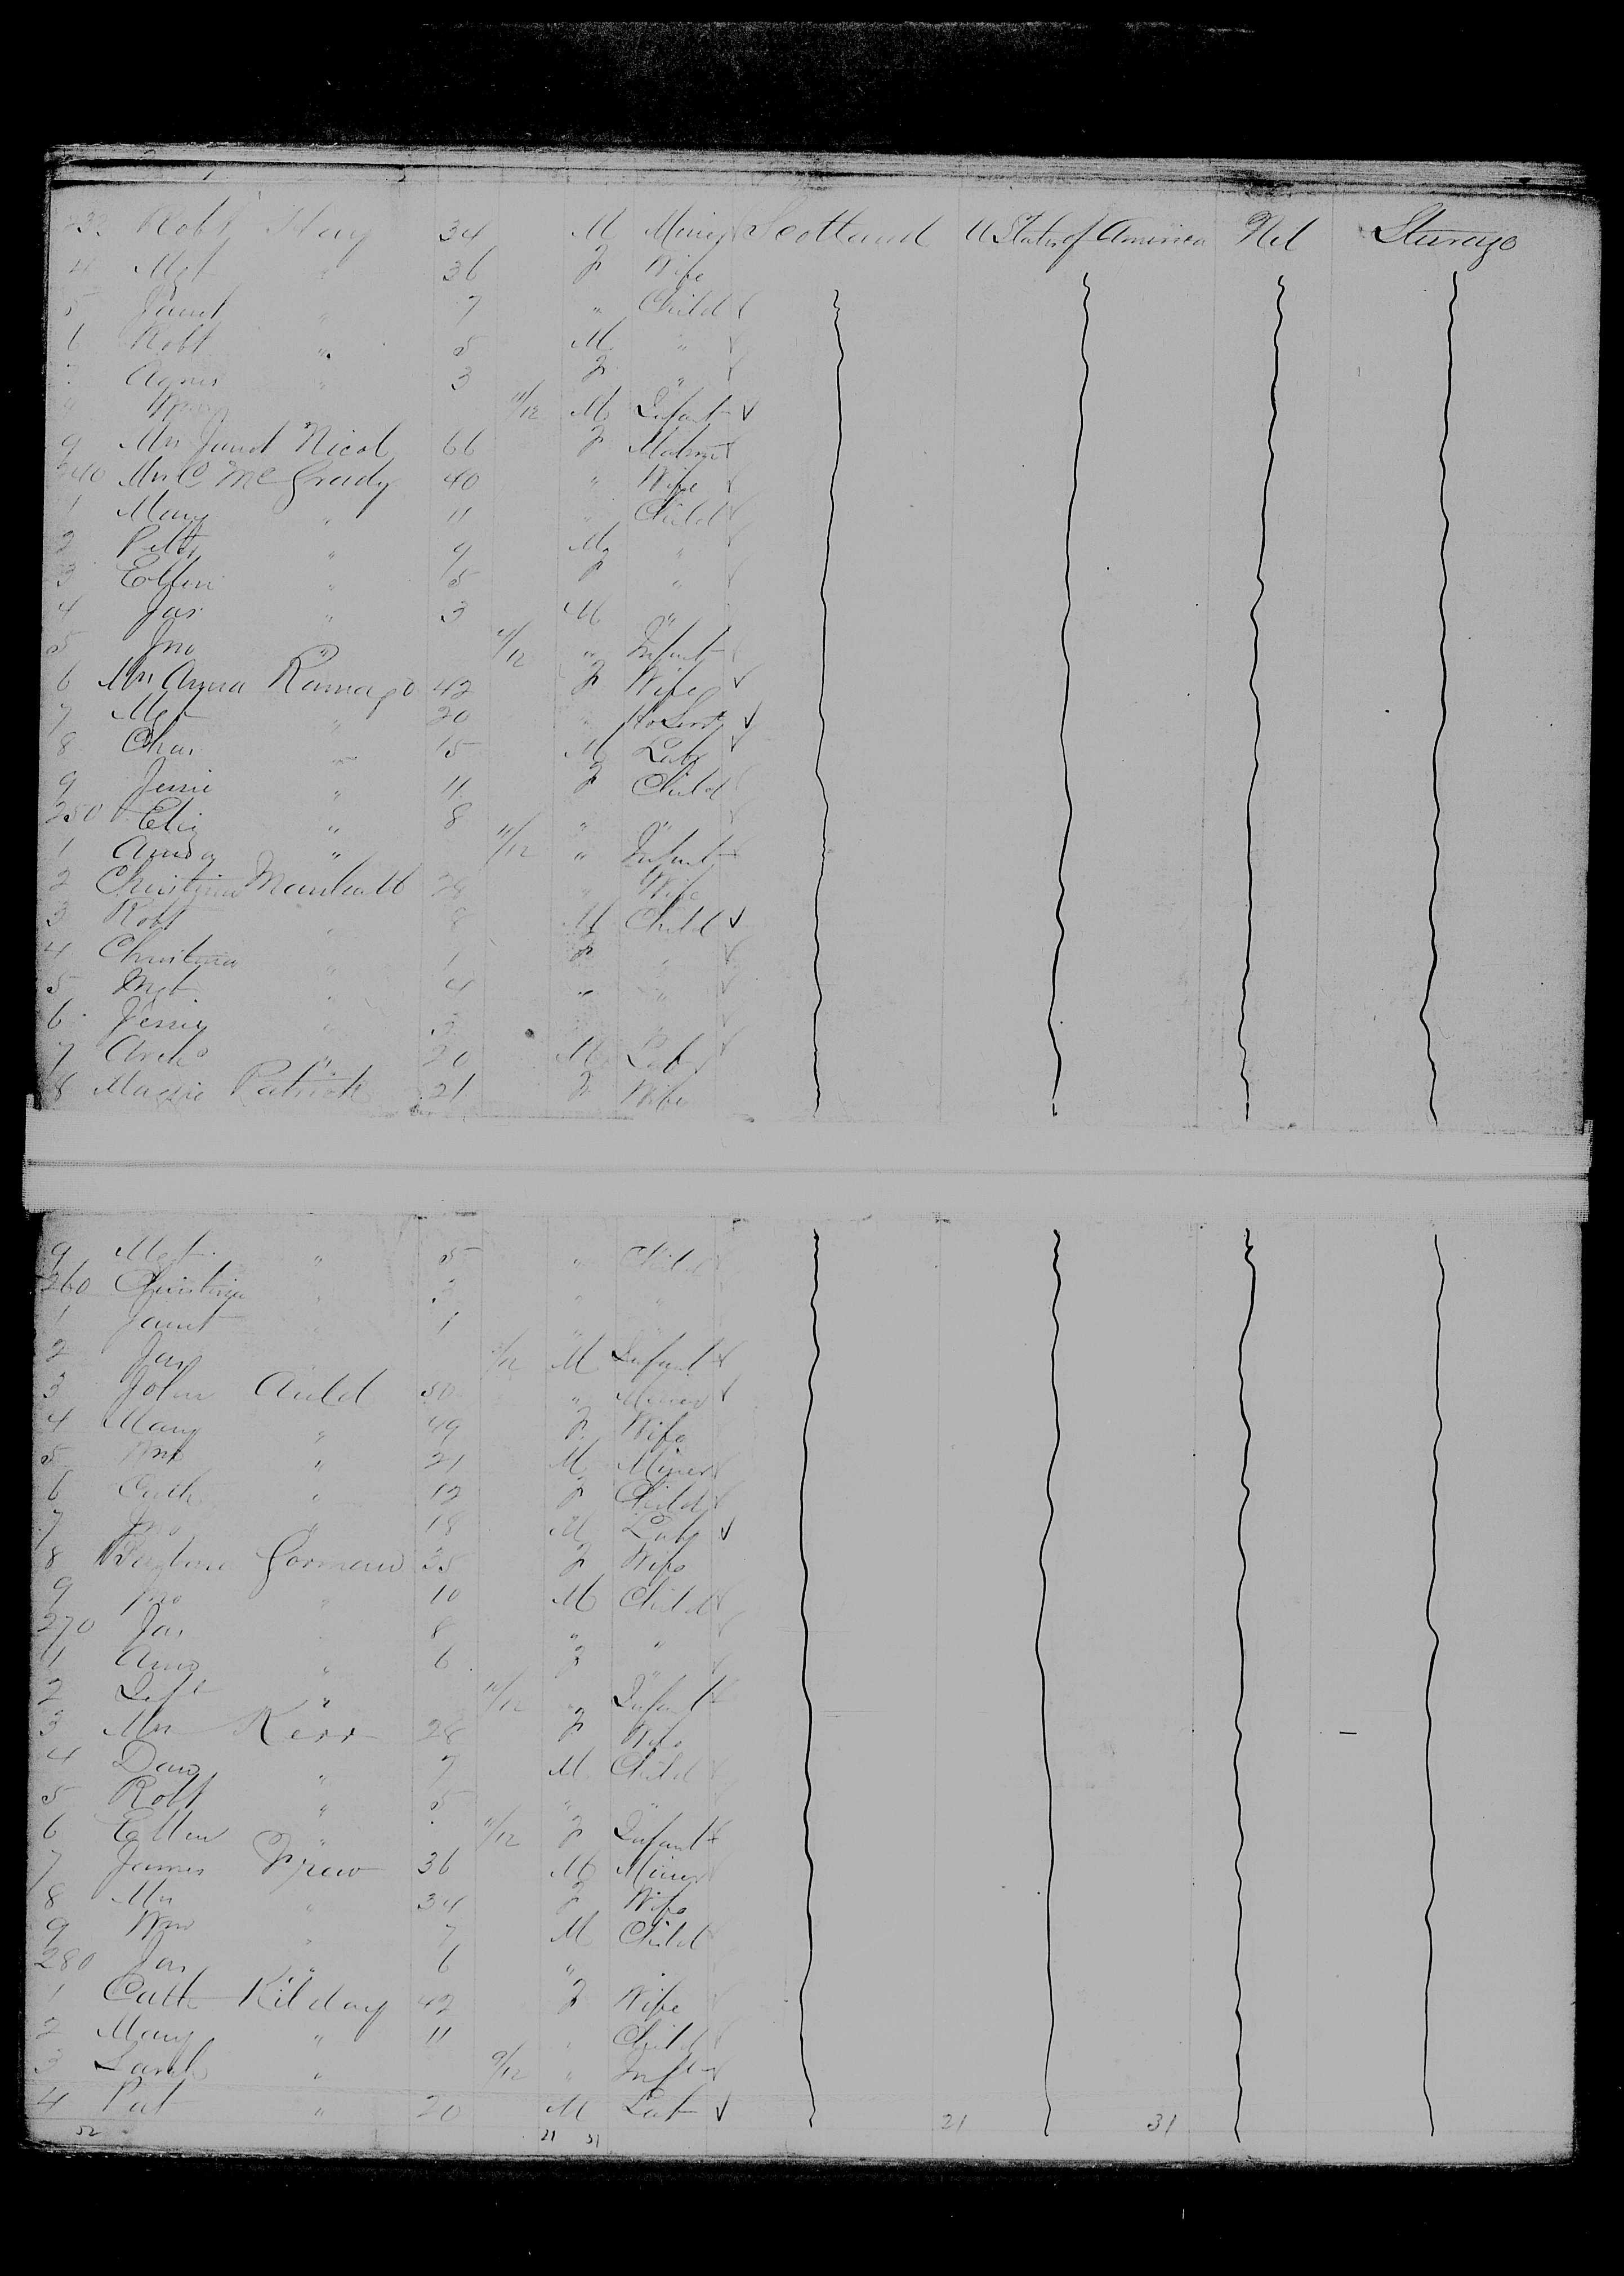 233 Robt Hay 34 M Miner Scotland U States of America Nil Steerage
4 Mgt " 36 F Wife
5 Janet " 7 " Child
6 Robt " 5 M "
7 Agnes " 3 F "
11/12 M Infant
9 Mrs Janet Nicol 66 F Matron
240 Mrs C McGrady 40 " Wife
1 Mary " 11 " Child
2 Peter " 9 M "
3 Ellen " 5 F "
4 Jas " 3 M "
5 Jno " 11/12 " Infant
6 Mrs Anna Ramage 42 F Wife
7 Mgt " 20 " Ho Servt
8 Chas " 15 M Labr
9 Jessie " 11 F Child
250 Eliz " 8 " "
1 " 11/12 " Infant
2 Christina 28 " Wife
3 Robt " 8 M Child
4 Christina " F "
5 Mgt " 4 " "
6 Jessie "
7 Archd " 20 M Labr
8 Maggie Patrick 21 F Wife
9 Mgt " 5 " Child
260 Christina " " "
1 Janet " 1 " "
2 Jas M Infant
3 John Auld 50 " Miner
4 Mary " 49 F Wife
5 Wm " 21 M Miner
6 Cath " 12 F Child
7 Jno " 18 M Labr
8 Gorman 35 F Wife
9 Jno " 10 M Child
270 Jas 8 " "
1 Ann " 6 F
2 " 11/12 " Infant
3 Mrs Kerr 28 F Wife
4 Dav " 7 M Child
5 Robt " 5 " "
6 Ellen " 11/12 F Infant
7 James Frew 36 M Miner
8 Mrs " 34 F Wife
9 Wm " 7 M Child
280 Jas " 6 "
1 Cath Kilday 42 F Wife
2 Mary " 11 " Child
3 Sarah " 9/12 " Inft
4 Pat " 20 M Lab
52 21 31 21 31